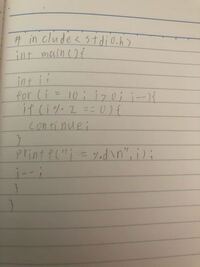 # include<stdio.h>
int main(){
int i;
for (i = 10; i>0; i--){
if (i % 2 == 0){
continue;
}
printf("i = %d\n", i);
i--;
}
}